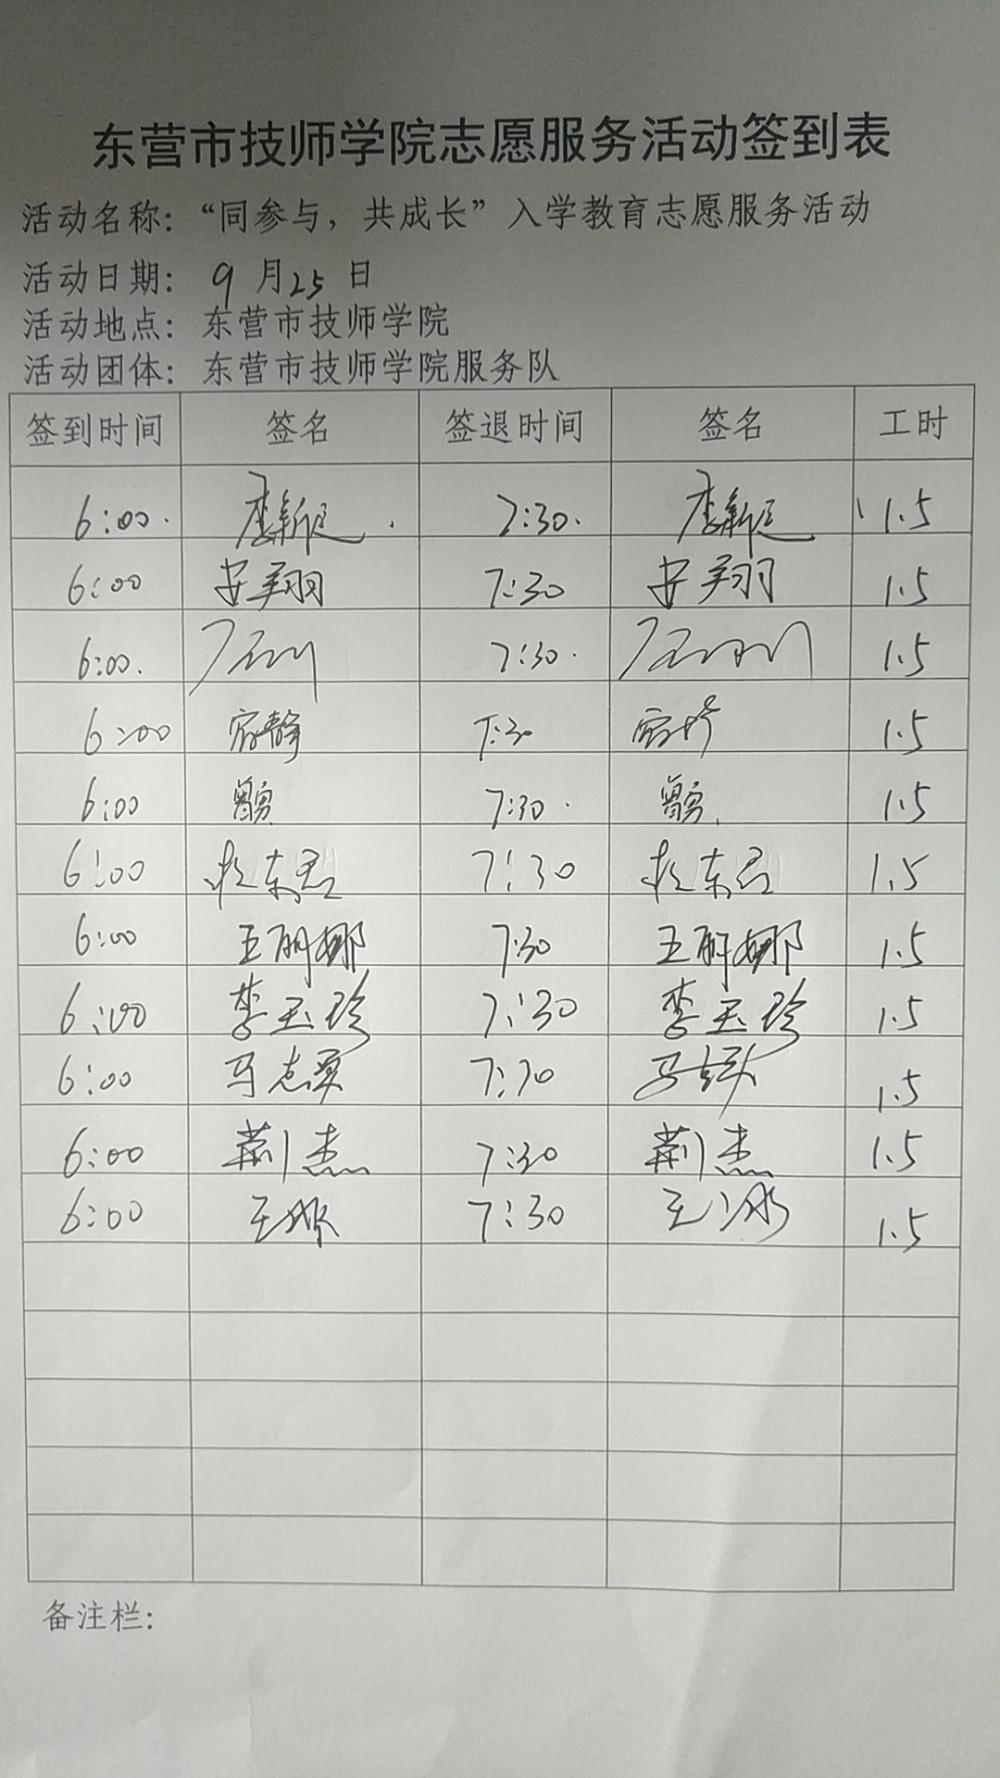 东营市技师学院志愿服务活动签到表
活动名称：“同参与，共成长”入学教育志愿服务活动
活动日期：9月25日
活动地点：东营市技师学院
活动团体：东营市技师学院服务队
签到时间 签名 签退时间 签名 工时
6:00. 7:30. 1.5
6:00 安翔羽 7:30 安翔羽 1.5
6:00. 7:30. 1.5
6:00 7:30 1.5
6:00 7:30. 1.5
6:00 7:30 1.5
6:00 王丽娜 7:30 王丽娜 1.5
6:00 李玉珍 7:30 李玉珍 1.5
6:00 7:30 1.5
6:00 荆杰 7:30 荆杰 1.5
6:00 7:30 1.5
备注栏：